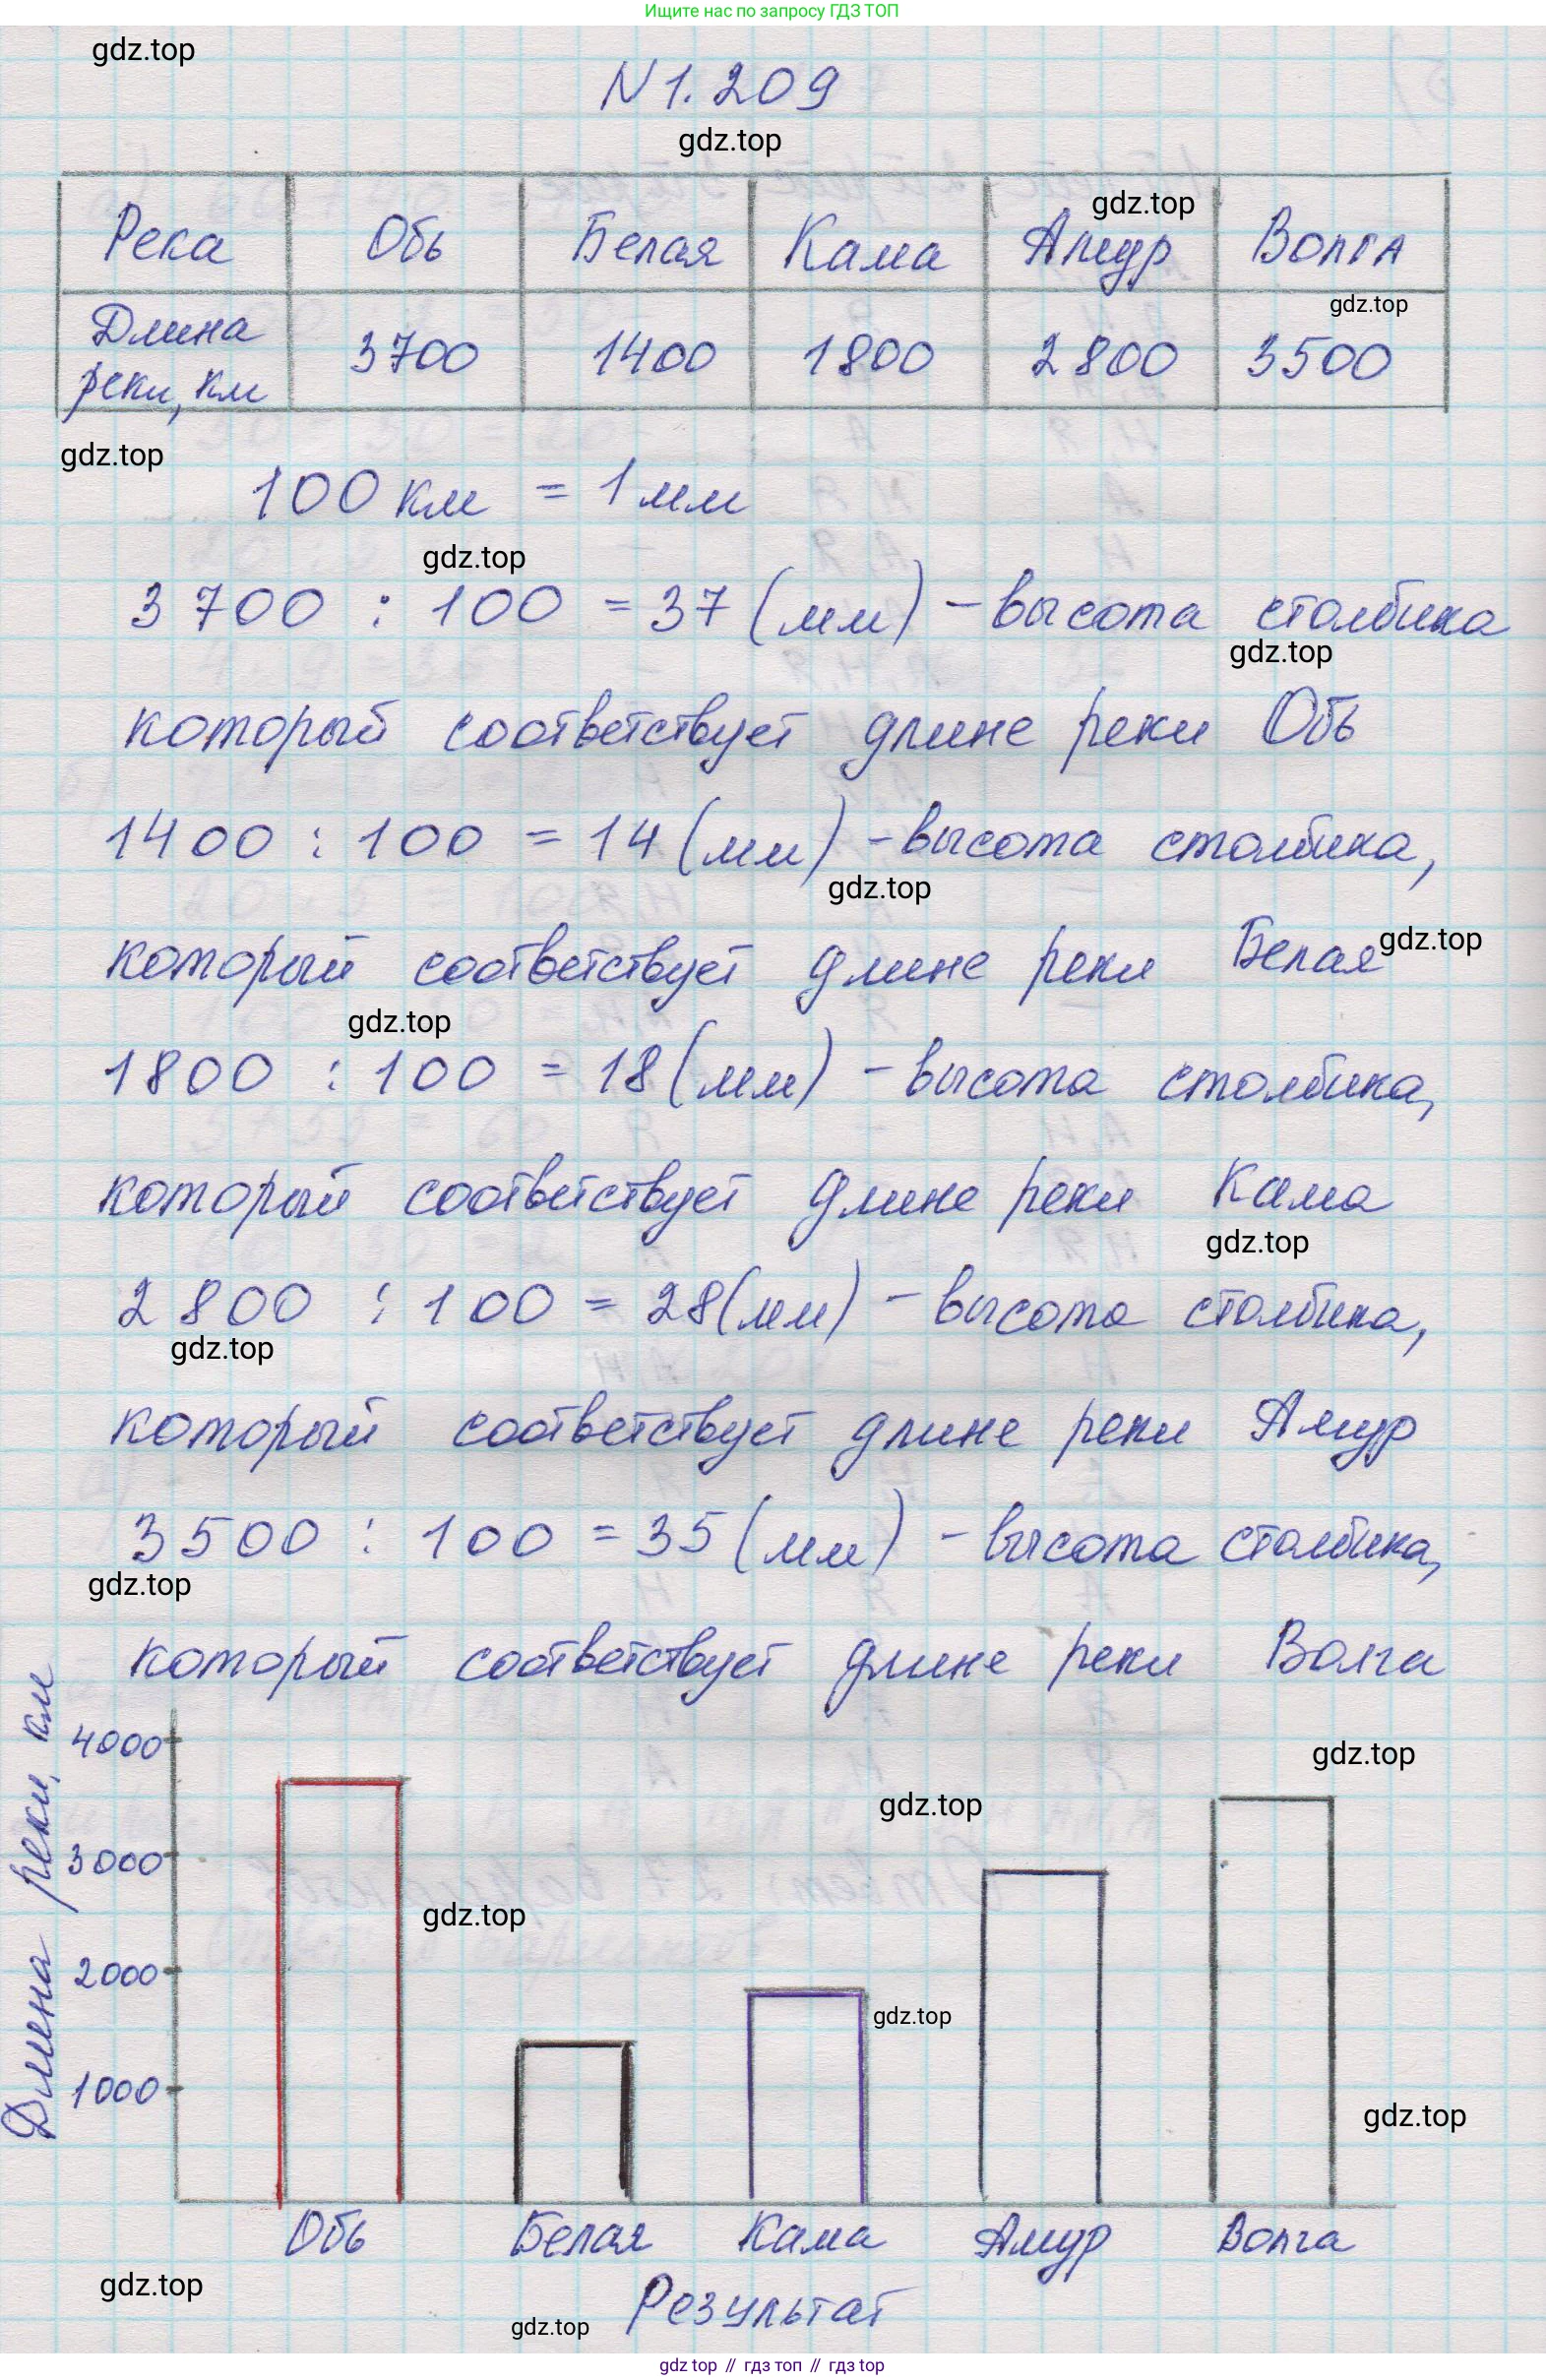 Ищите нас по запросу ГДЗ ТОП
gdz.top
N 1.209
gdz.top
Река Обь Белая Кама Амур Волга
gdz.top
Длина реки, км 3700 1400 1800 2800 3500
gdz.top
gdz.top
100 км = 1 мм
gdz.top
3700 : 100 = 37 (мм) - высота столбика
gdz.top
который соответствует длине реки Обь
1400 : 100 = 14 (мм) - высота столбика,
gdz.top
который соответствует длине реки Белая
gdz.top
gdz.top
1800 : 100 = 18 (мм) - высота столбика,
который соответствует длине реки Кама
gdz.top
2800 : 100 = 28 (мм) - высота столбика,
gdz.top
который соответствует длине реки Амур
3500 : 100 = 35 (мм) - высота столбика,
gdz.top
который соответствует длине реки Волга
Длина реки, км
4000
gdz.top
gdz.top
3000
gdz.top
2000
gdz.top
1000
gdz.top
Обь Белая Кама Амур Волга
gdz.top
Результат
gdz.top
gdz top // гдз топ // гдз top